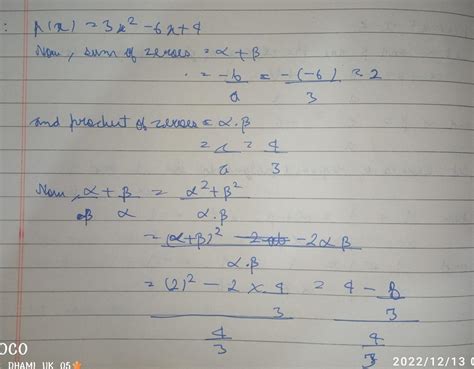 : p(x) = 3x² - 6x + 4
Now, sum of zeroes = α + β
= -b/a = -(-6)/3 = 2
and product of zeroes = α.β
= c/a = 4/3
Now, α/β + β/α = α² + β² / α.β
= (α+β)² - 2αβ / α.β
= (2)² - 2 × 4/3 / 4/3 = 4 - 8/3 / 4/3
OCO
DHAMI UK 05
2022/12/13 0